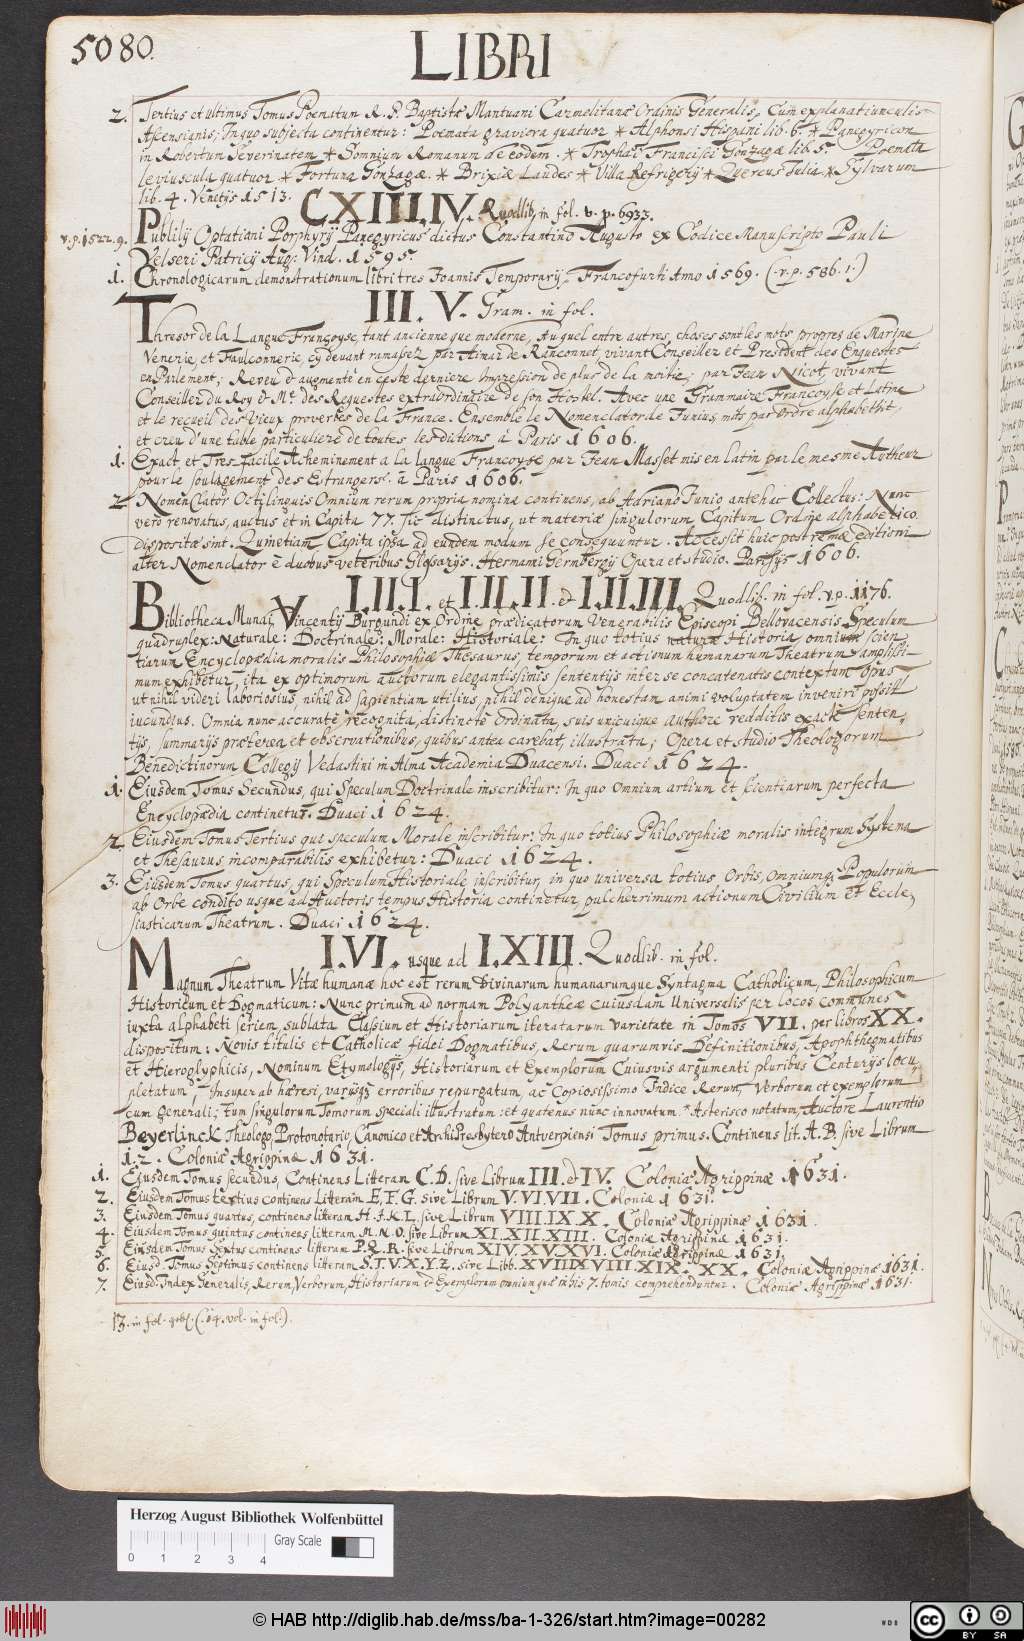 5080.
LIBRI
2. Tertius et ultimus Tomus Poematum R. P. Baptistæ Mantuani Carmelitanæ Ordinis Generalis, Cum explanatiunculis
Ascensianis; In quo subjecta continentur: Poemata graviora quatuor * Alphonsi Hispani lib. 6. * Panegyricon
in Robertum Severinatem * Somnium Romanum de eodem. * Trophæi Francisci Gonzagæ lib. 5. Poemata
leviuscula quatuor * Fortuna Gonzagæ. * Brixiæ Laudes * Villa Refrigerij * Quercus Iulia * Sylvarum
lib. 4. Venetijs 1513.
CXIII.IV. Quodlib. in fol. v. p. 6933.
v.p. 1522. 9. Publilij Optatiani Porphyrij Panegyricus dictus Constantino Augusto ex Codice Manuscripto Pauli
Velseri Patricij Aug: Vind. 1595.
1. Chronologicarum demonstrationum libri tres Joannis Temporarij. Francofurti Anno 1569. (v. p. 586. 1.)
III. V. Gram. in fol.
Thresor de la Langue Françoyse, tant ancienne que moderne, Auquel entre autres choses sont les mots propres de Marine
Venerie, et Faulconnerie, cy devant ramassez par Aimar de Ranconnet, vivant Conseiller et President des Enquestes
en Parlement; Reveu & augmenté en ceste derniere Impression de plus de la moitie; par Jean Nicot, vivant
Conseiller du Roy & Mr. des Requestes extraordinaire de son Hostel. Avec une Grammaire Françoyse et Latine
et le recueil des vieux proverbes de la France. Ensemble le Nomenclator de Junius, mots par ordre alphabethit,
et creu d'une table particuliere de toutes les dictions, à Paris 1606.
1. Exact, et Tres-facile Acheminement a la langue Francoyse par Jean Masset mis en latin par le mesme Autheur
pour le soulagement des Estrangers. à Paris 1606.
2 Nomenclator Octilinguis Omnium rerum propria nomina continens, ab Adriano Junio antehac Collectus: Nunc
vero renovatus, auctus et in Capita 77. sic distinctus, ut materiæ singulorum Capitum Ordine alphabetico
dispositæ sint. Quinetiam Capita ipsa ad eundem modum se consequuntur. Accessit huic postremæ editioni
alter Nomenclator è duobus veteribus Glosarijs. Hermanni Germbergij Opera et studio. Parisijs 1606.
I.III. et I.III.II. & I.II.III. Quodlib. in fol. v. p. 1176.
Bibliotheca Mundi, Vincentij Burgundi ex Ordine prædicatorum Venerabilis Episcopi Bellovacensis Speculum
quadruplex: Naturale: Doctrinale: Morale: Historiale: In quo totius naturæ Historia omnium scien
tiarum Encyclopædia moralis Philosophiæ Thesaurus, temporum et actionum humanarum Theatrum amplissi-
mum exhibetur, ita ex optimorum auctorum elegantissimis sententijs inter se concatenatis contextum opus
ut nihil videri laboriosius, nihil ad sapientiam utilius, nihil denique ad honestam animi voluptatem inveniri possit
iucundius. Omnia nunc accuratè recognita, distinctè ordinata, suis unicuique authore redditis exacte senten,
tijs, summarijs præterea et observationibus, quibus antea carebat, illustrata; Opera et studio Theologorum
Benedictinorum Collegij Vedastini in Alma Academia Duacensi. Duaci 1624.
1. Eiusdem Tomus Secundus, qui Speculum Doctrinale inscribitur: In quo Omnium artium et scientiarum perfecta
Encyclopædia continetur. Duaci 1624.
2. Eiusdem Tomus Tertius qui speculum Morale inscribitur: In quo totius Philosophiæ moralis integrum Systema
et Thesaurus incomparabilis exhibetur: Duaci 1624.
3. Eiusdem Tomus quartus, qui Speculum Historiale inscribitur, in quo universa totius Orbis, Omniumq, Populorum
ab Orbe condito usque ad Auctoris tempus Historia continetur pulcherrimum actionum Civilium et Eccle,
siasticarum Theatrum. Duaci 1624.
I.VI. usque ad I.XIII. Quodlib. in fol.
Magnum Theatrum Vitæ humanæ hoc est rerum Divinarum humanarumque Syntagma Catholicum, Philosophicum
Historicum et Dogmaticum: Nunc primum ad normam Polyantheæ cuiusdam Universalis per locos communes
iuxta alphabeti seriem, sublata Classium et Historiarum iteratarum varietate in Tomos VII. per libros XX.
dispositum: Novis titulis et Catholicæ fidei Dogmatibus, Rerum quarumvis Definitionibus, Apophthegmatibus
et Hieroglyphicis, Nominum Etymologijs, Historiarum et Exemplorum Cuiusvis argumenti pluribus Centurijs locu,
pletatum, Insuper ab hæresi, varijsq, erroribus repurgatum, ac Copiosissimo Indice Rerum, Verborum et exemplorum
cum generali; tum singulorum Tomorum speciali illustratum: et quatenus nunc innovatum * Asterisco notatum, Auctore Laurentio
Beyerlinck Theologo, Protonotario, Canonico et Archipresbytero Antverpiensi Tomus primus. Continens lit. A. B. sive Librum
1. 2. Coloniæ Agrippinæ 1631.
1. Eiusdem Tomus secundus, Continens Litteram C. D. sive Librum III. & IV. Coloniæ Agrippinæ 1631.
2. Eiusdem Tomus tertius continens Litteram E. F. G. sive Librum V. VI VII. Coloniæ 1631.
3. Eiusdem Tomus quartus, continens litteram H. I. K. L. sive Librum VIII. IX. X. Coloniæ Agrippinæ 1631.
4. Eiusdem Tomus quintus continens litteram M. N. O. sive Librum XI. XII. XIII. Coloniæ Agrippinæ 1631.
5. Eiusdem Tomus Sextus continens litteram P. Q. R. sive Librum XIV. XV. XVI. Coloniæ Agrippinæ 1631.
6. Eiusd. Tomus Septimus continens litteram. S. T. V. X. Y. Z. sive Libb. XVII XVIII. XIX. XX. Coloniæ Agrippinæ 1631.
7. Eiusd. Index Generalis, Rerum, Verborum, Historiarum & Exemplorum omnium quæ in his 7. tomis comprehenduntur. Coloniæ Agrippinæ 1631.
13. in fol. (14. vol. in fol.)
Herzog August Bibliothek Wolfenbüttel
0 1 2 3 4 Gray Scale
© HAB http://diglib.hab.de/mss/ba-1-326/start.htm?image=00282
WDB
CC BY SA